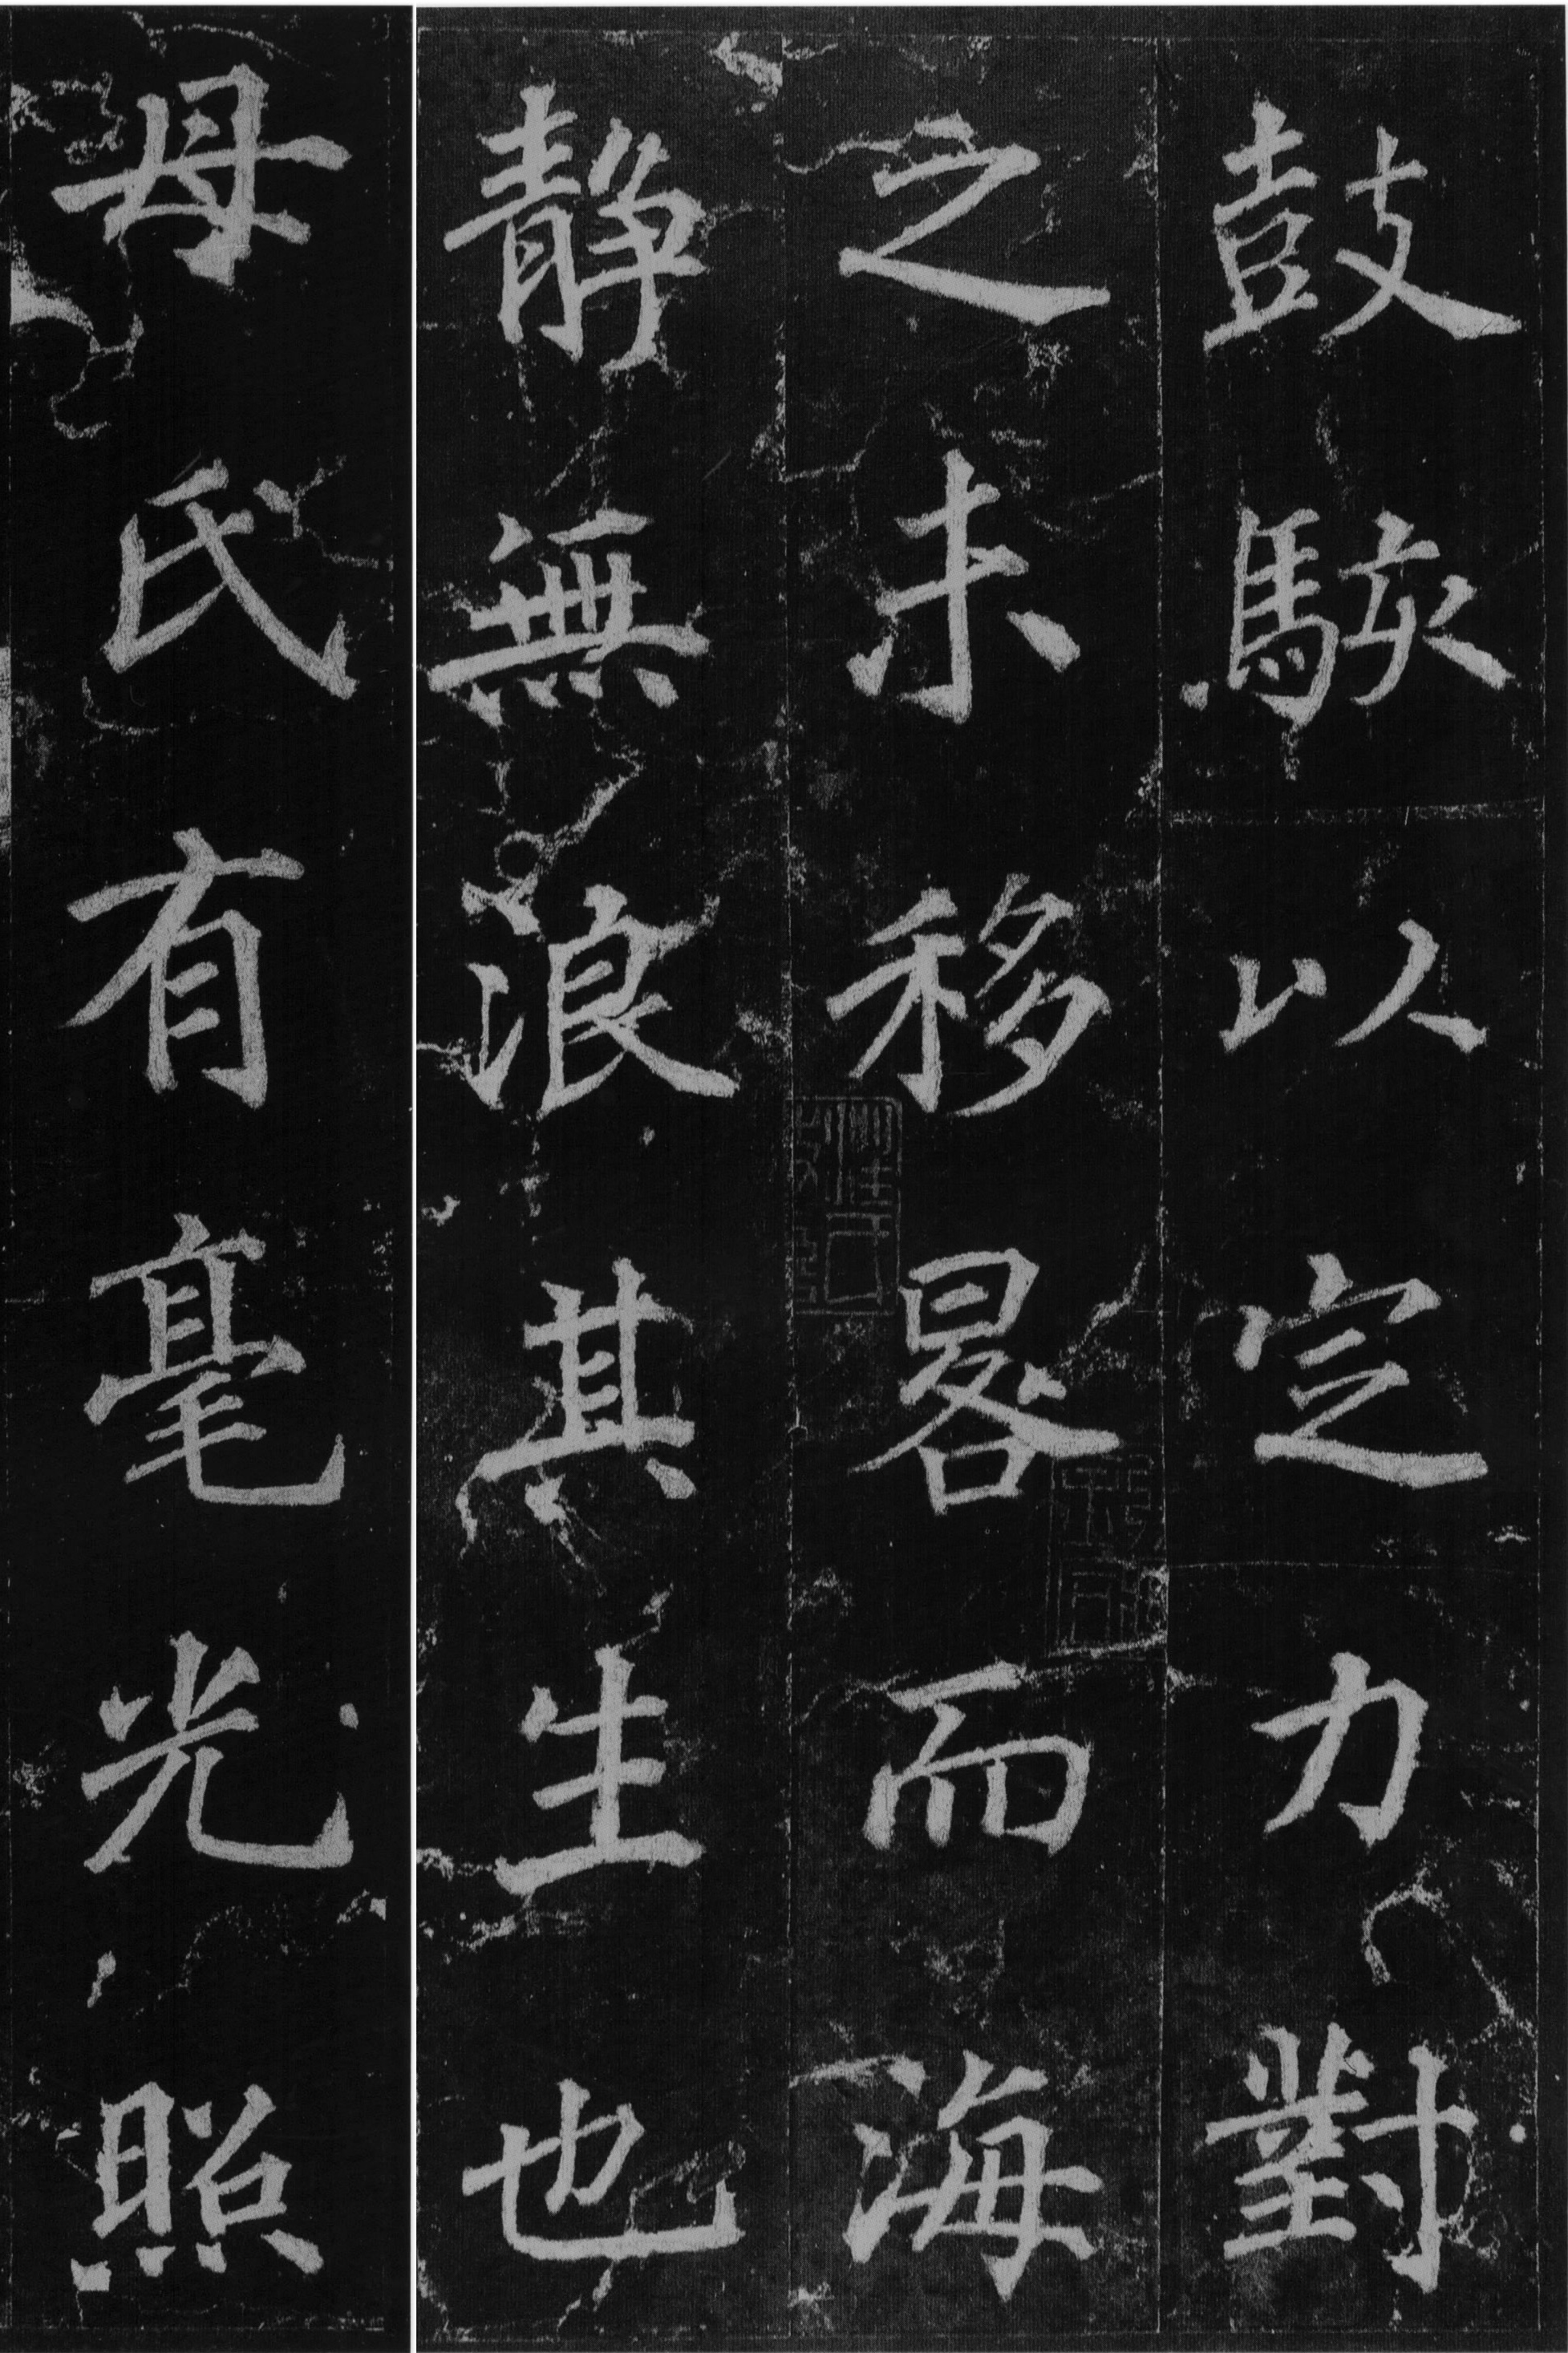 鼓駭以定力對
之未移晷而海
静無浪其生也
母氏有毫光照